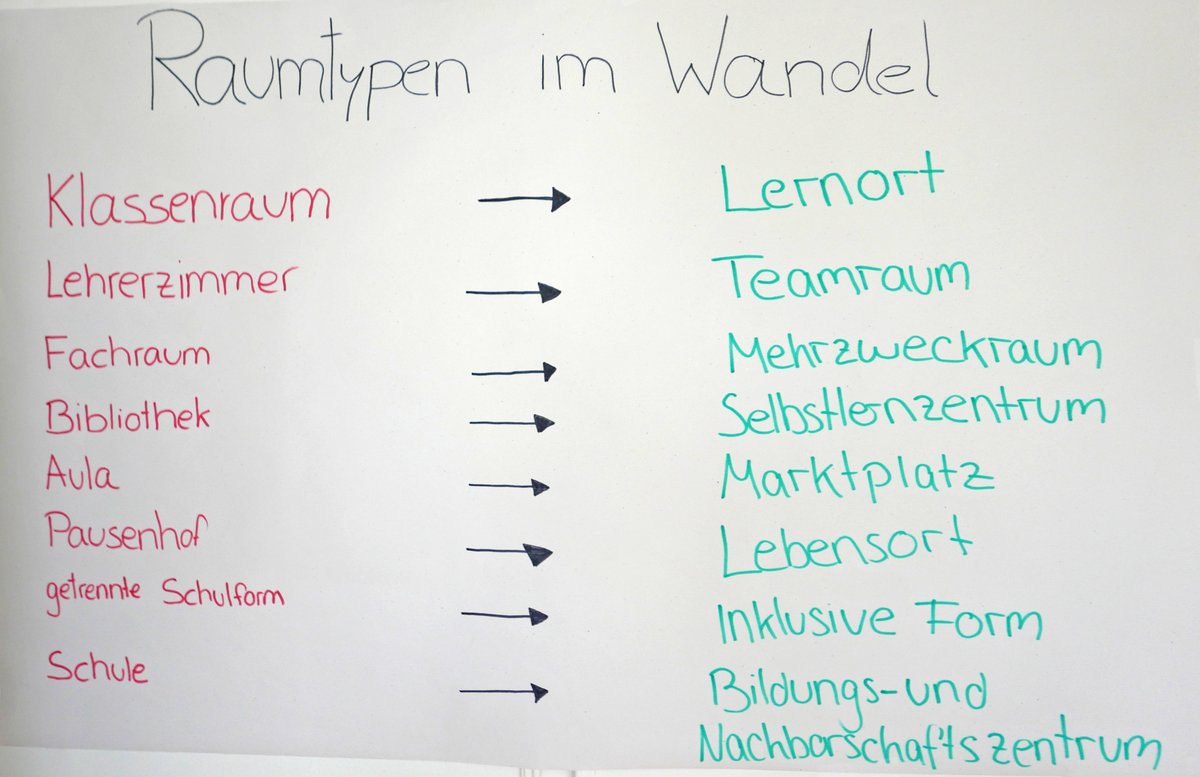 Raumtypen im Wandel
Klassenraum → Lernort
Lehrerzimmer → Teamraum
Fachraum → Mehrzweckraum
Bibliothek → Selbstlernzentrum
Aula → Marktplatz
Pausenhof → Lebensort
getrennte Schulform → Inklusive Form
Schule → Bildungs-und
Nachbarschaftszentrum